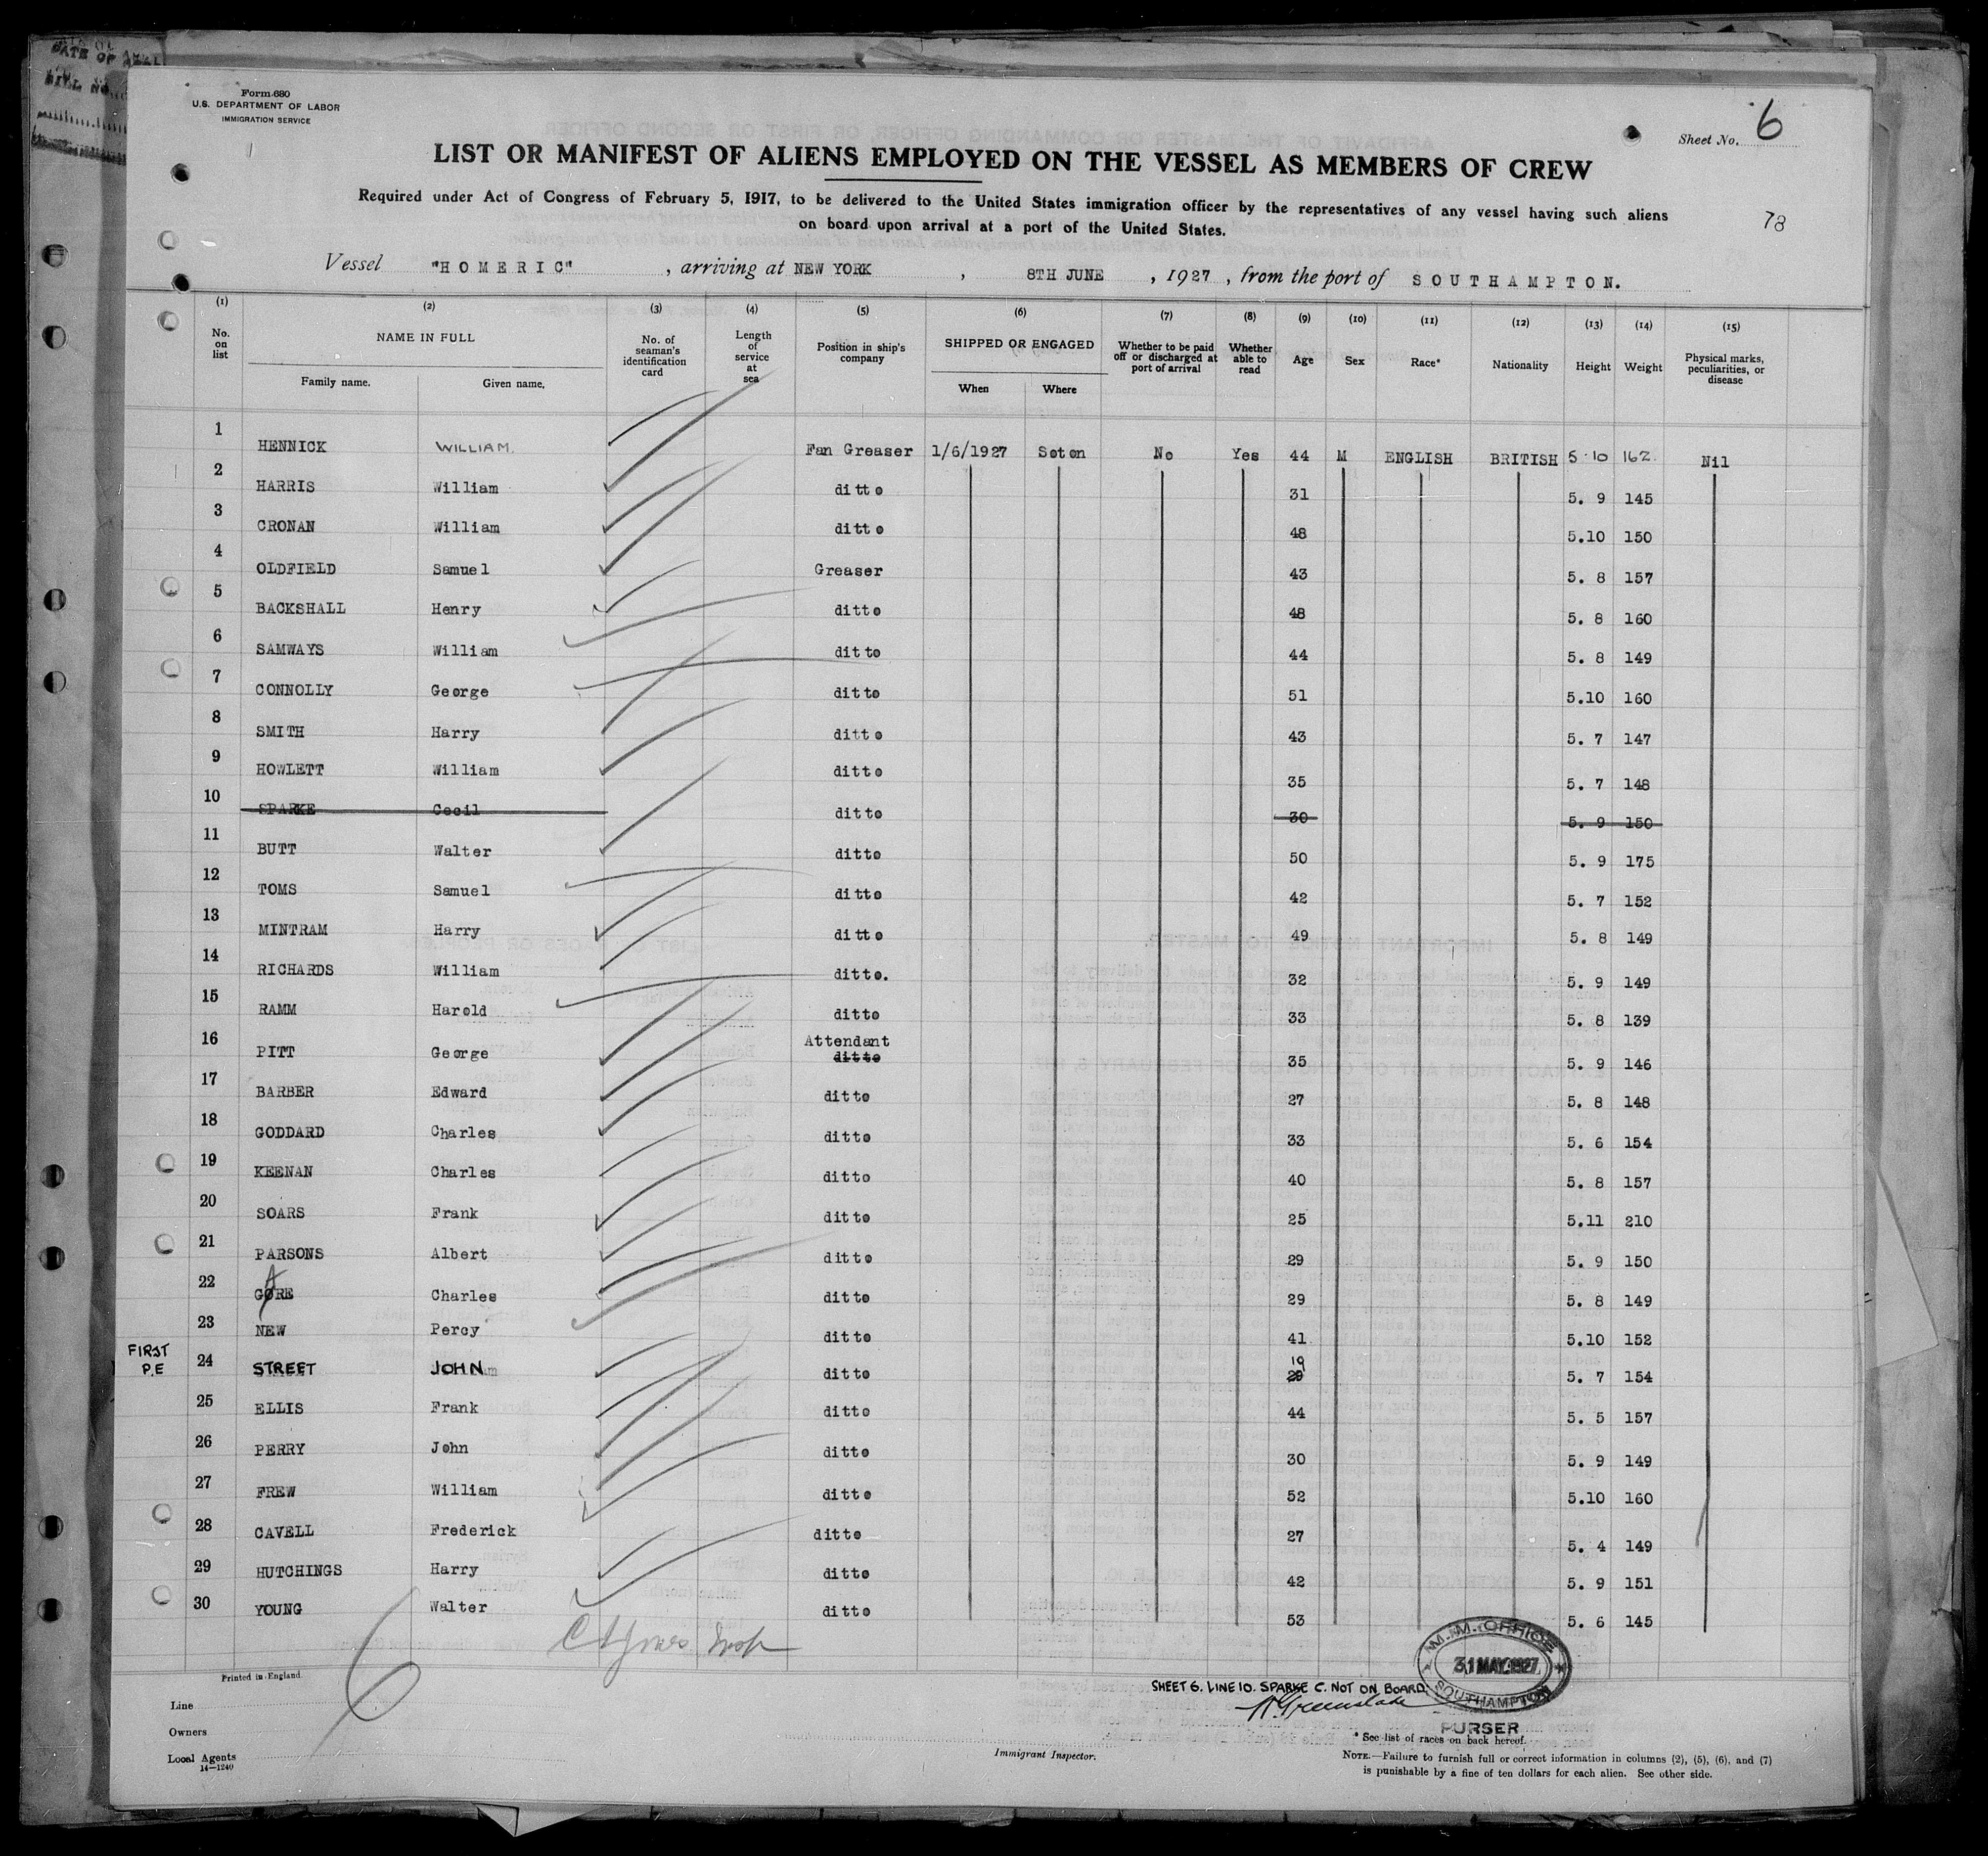 DATE OF
BILL NO.
Form 680
U.S. DEPARTMENT OF LABOR
IMMIGRATION SERVICE
Sheet No. 6
LIST OR MANIFEST OF ALIENS EMPLOYED ON THE VESSEL AS MEMBERS OF CREW
Required under Act of Congress of February 5, 1917, to be delivered to the United States immigration officer by the representatives of any vessel having such aliens
on board upon arrival at a port of the United States.
78
Vessel "HOMERIC", arriving at NEW YORK, 8TH JUNE, 1927, from the port of SOUTHAMPTON.
(1) No. on list (2) NAME IN FULL Family name. Given name. (3) No. of seaman's identification card (4) Length of service at sea (5) Position in ship's company (6) SHIPPED OR ENGAGED When Where (7) Whether to be paid off or discharged at port of arrival (8) Whether able to read (9) Age (10) Sex (11) Race* (12) Nationality (13) Height (14) Weight (15) Physical marks, peculiarities, or disease
1 HENNICK WILLIAM. Fan Greaser 1/6/1927 Soton No Yes 44 M ENGLISH BRITISH 5 10 162 Nil
2 HARRIS William ditto 31 5. 9 145
3 CRONAN William ditto 48 5.10 150
4 OLDFIELD Samuel Greaser 43 5. 8 157
5 BACKSHALL Henry ditto 48 5. 8 160
6 SAMWAYS William ditto 44 5. 8 149
7 CONNOLLY George ditto 51 5.10 160
8 SMITH Harry ditto 43 5. 7 147
9 HOWLETT William ditto 35 5. 7 148
10 SPARKE Cecil ditto 30 5. 9 150
11 BUTT Walter ditto 50 5. 9 175
12 TOMS Samuel ditto 42 5. 7 152
13 MINTRAM Harry ditto 49 5. 8 149
14 RICHARDS William ditto. 32 5. 9 149
15 RAMM Harold ditto 33 5. 8 139
16 PITT George Attendant ditto 35 5. 9 146
17 BARBER Edward ditto 27 5. 8 148
18 GODDARD Charles ditto 33 5. 6 154
19 KEENAN Charles ditto 40 5. 8 157
20 SOARS Frank ditto 25 5.11 210
21 PARSONS Albert ditto 29 5. 9 150
22 GORE A Charles ditto 29 5. 8 149
23 NEW Percy ditto 41 5.10 152
FIRST P.E 24 STREET JOHN ditto 19 29 5. 7 154
25 ELLIS Frank ditto 44 5. 5 157
26 PERRY John ditto 30 5. 9 149
27 FREW William ditto 52 5.10 160
28 CAVELL Frederick ditto 27 5. 4 149
29 HUTCHINGS Harry ditto 42 5. 9 151
30 YOUNG Walter ditto 53 5. 6 145
6
M.M. OFFICE
31 MAY 1927
SOUTHAMPTON
Printed in England
SHEET 6. LINE 10. SPARKE C. NOT ON BOARD.
PURSER
Line
Owners
Local Agents
14—1240
Immigrant Inspector.
* See list of races on back hereof.
NOTE.—Failure to furnish full or correct information in columns (2), (5), (6), and (7)
is punishable by a fine of ten dollars for each alien. See other side.